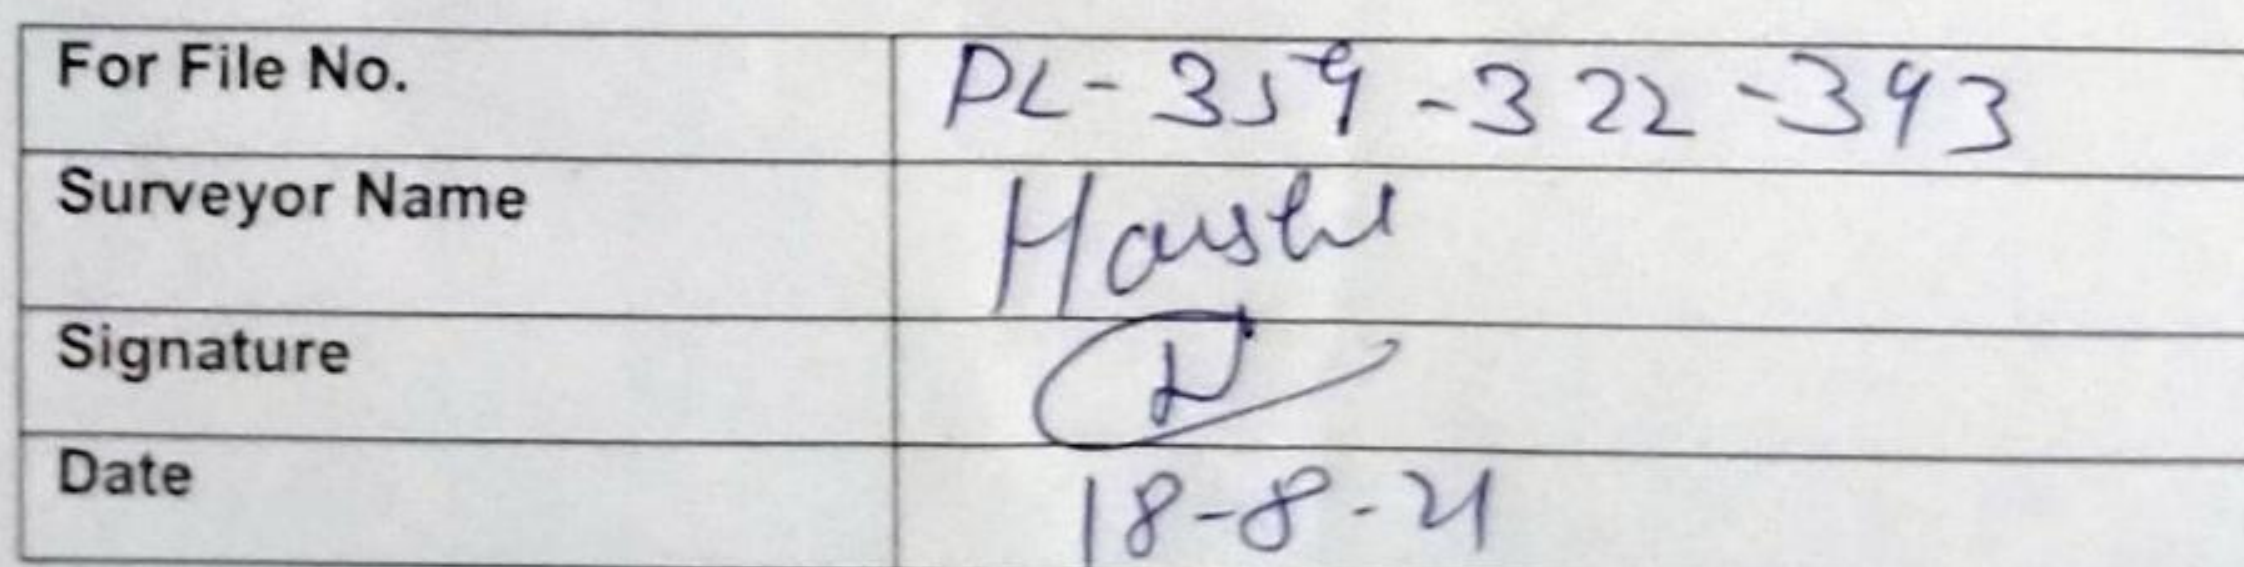 For File No. PL-359-322-393
Surveyor Name
Signature
Date 18-8-21